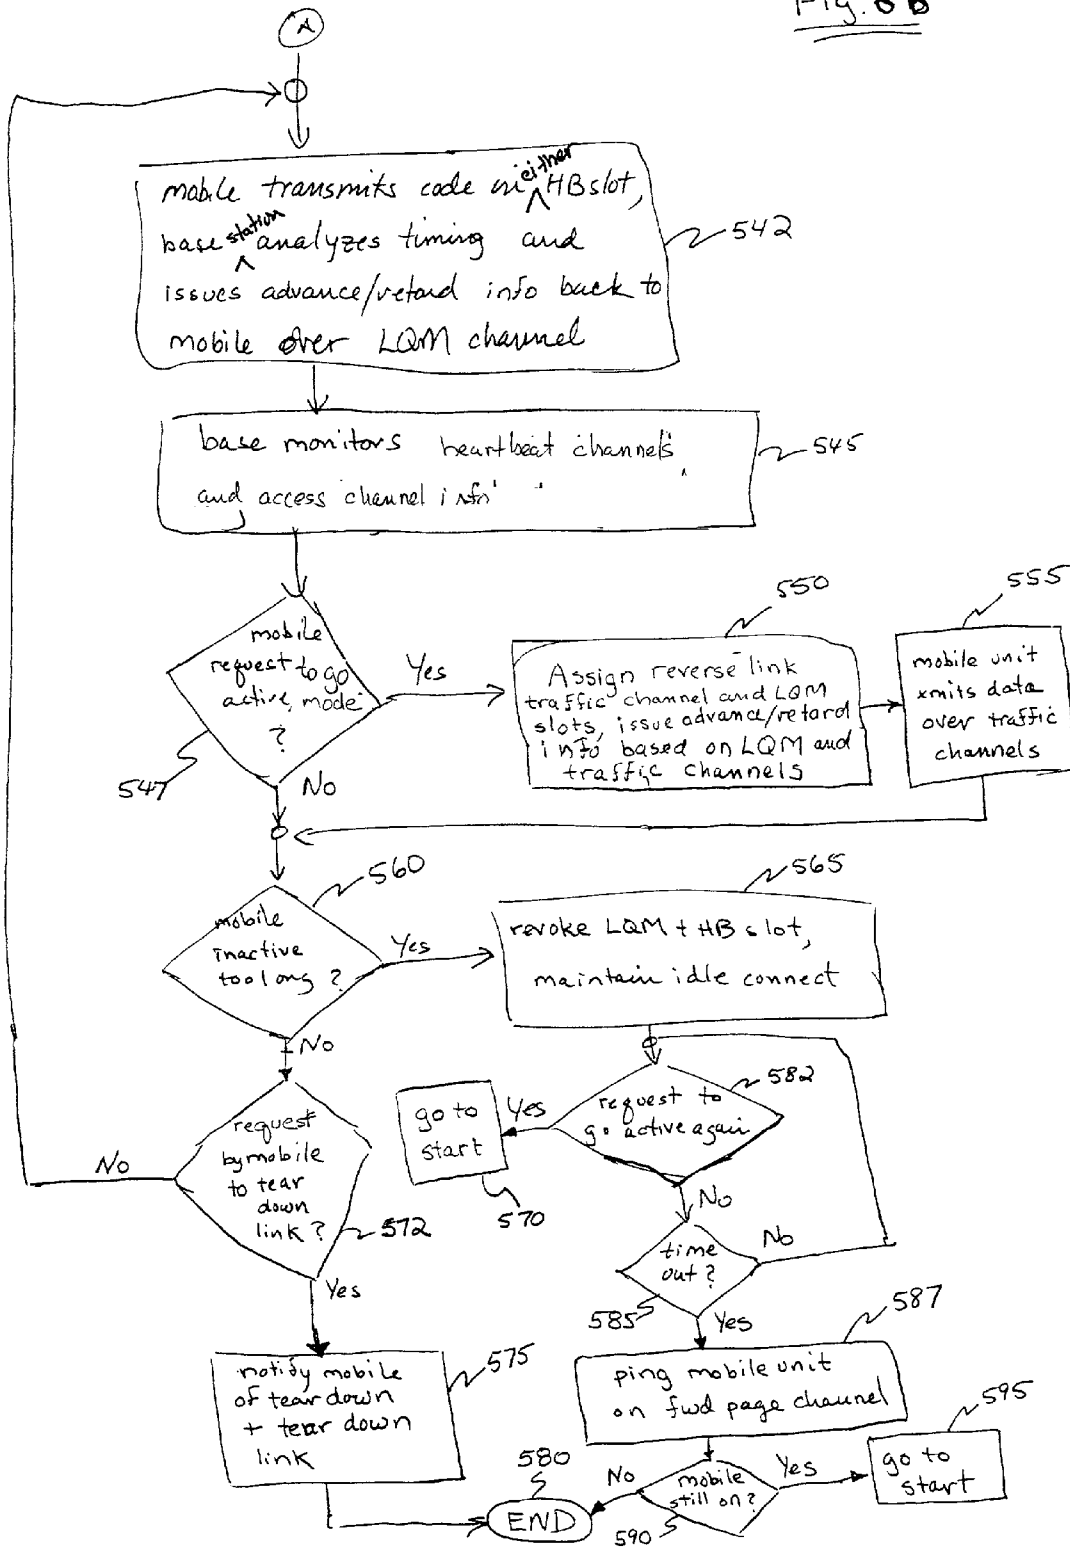 Fig. 8B
A
mobile transmits code in either HB slot,
base station analyzes timing and
issues advance/retard info back to
mobile over LQM channel
542
base monitors heartbeat channels
and access channel info
545
mobile
request to go
active mode
?
547
Yes
No
550
Assign reverse link
traffic channel and LQM
slots, issue advance/retard
info based on LQM and
traffic channels
555
mobile unit
xmits data
over traffic
channels
560
mobile
inactive
too long ?
Yes
No
565
revoke LQM + HB slot,
maintain idle connect
582
request to
go active again
Yes
No
go to
start
570
request
by mobile
to tear
down
link ?
572
No
Yes
time
out ?
585
No
Yes
587
ping mobile unit
on fwd page channel
575
notify mobile
of tear down
+ tear down
link
580
END
mobile
still on ?
590
No
Yes
595
go to
start